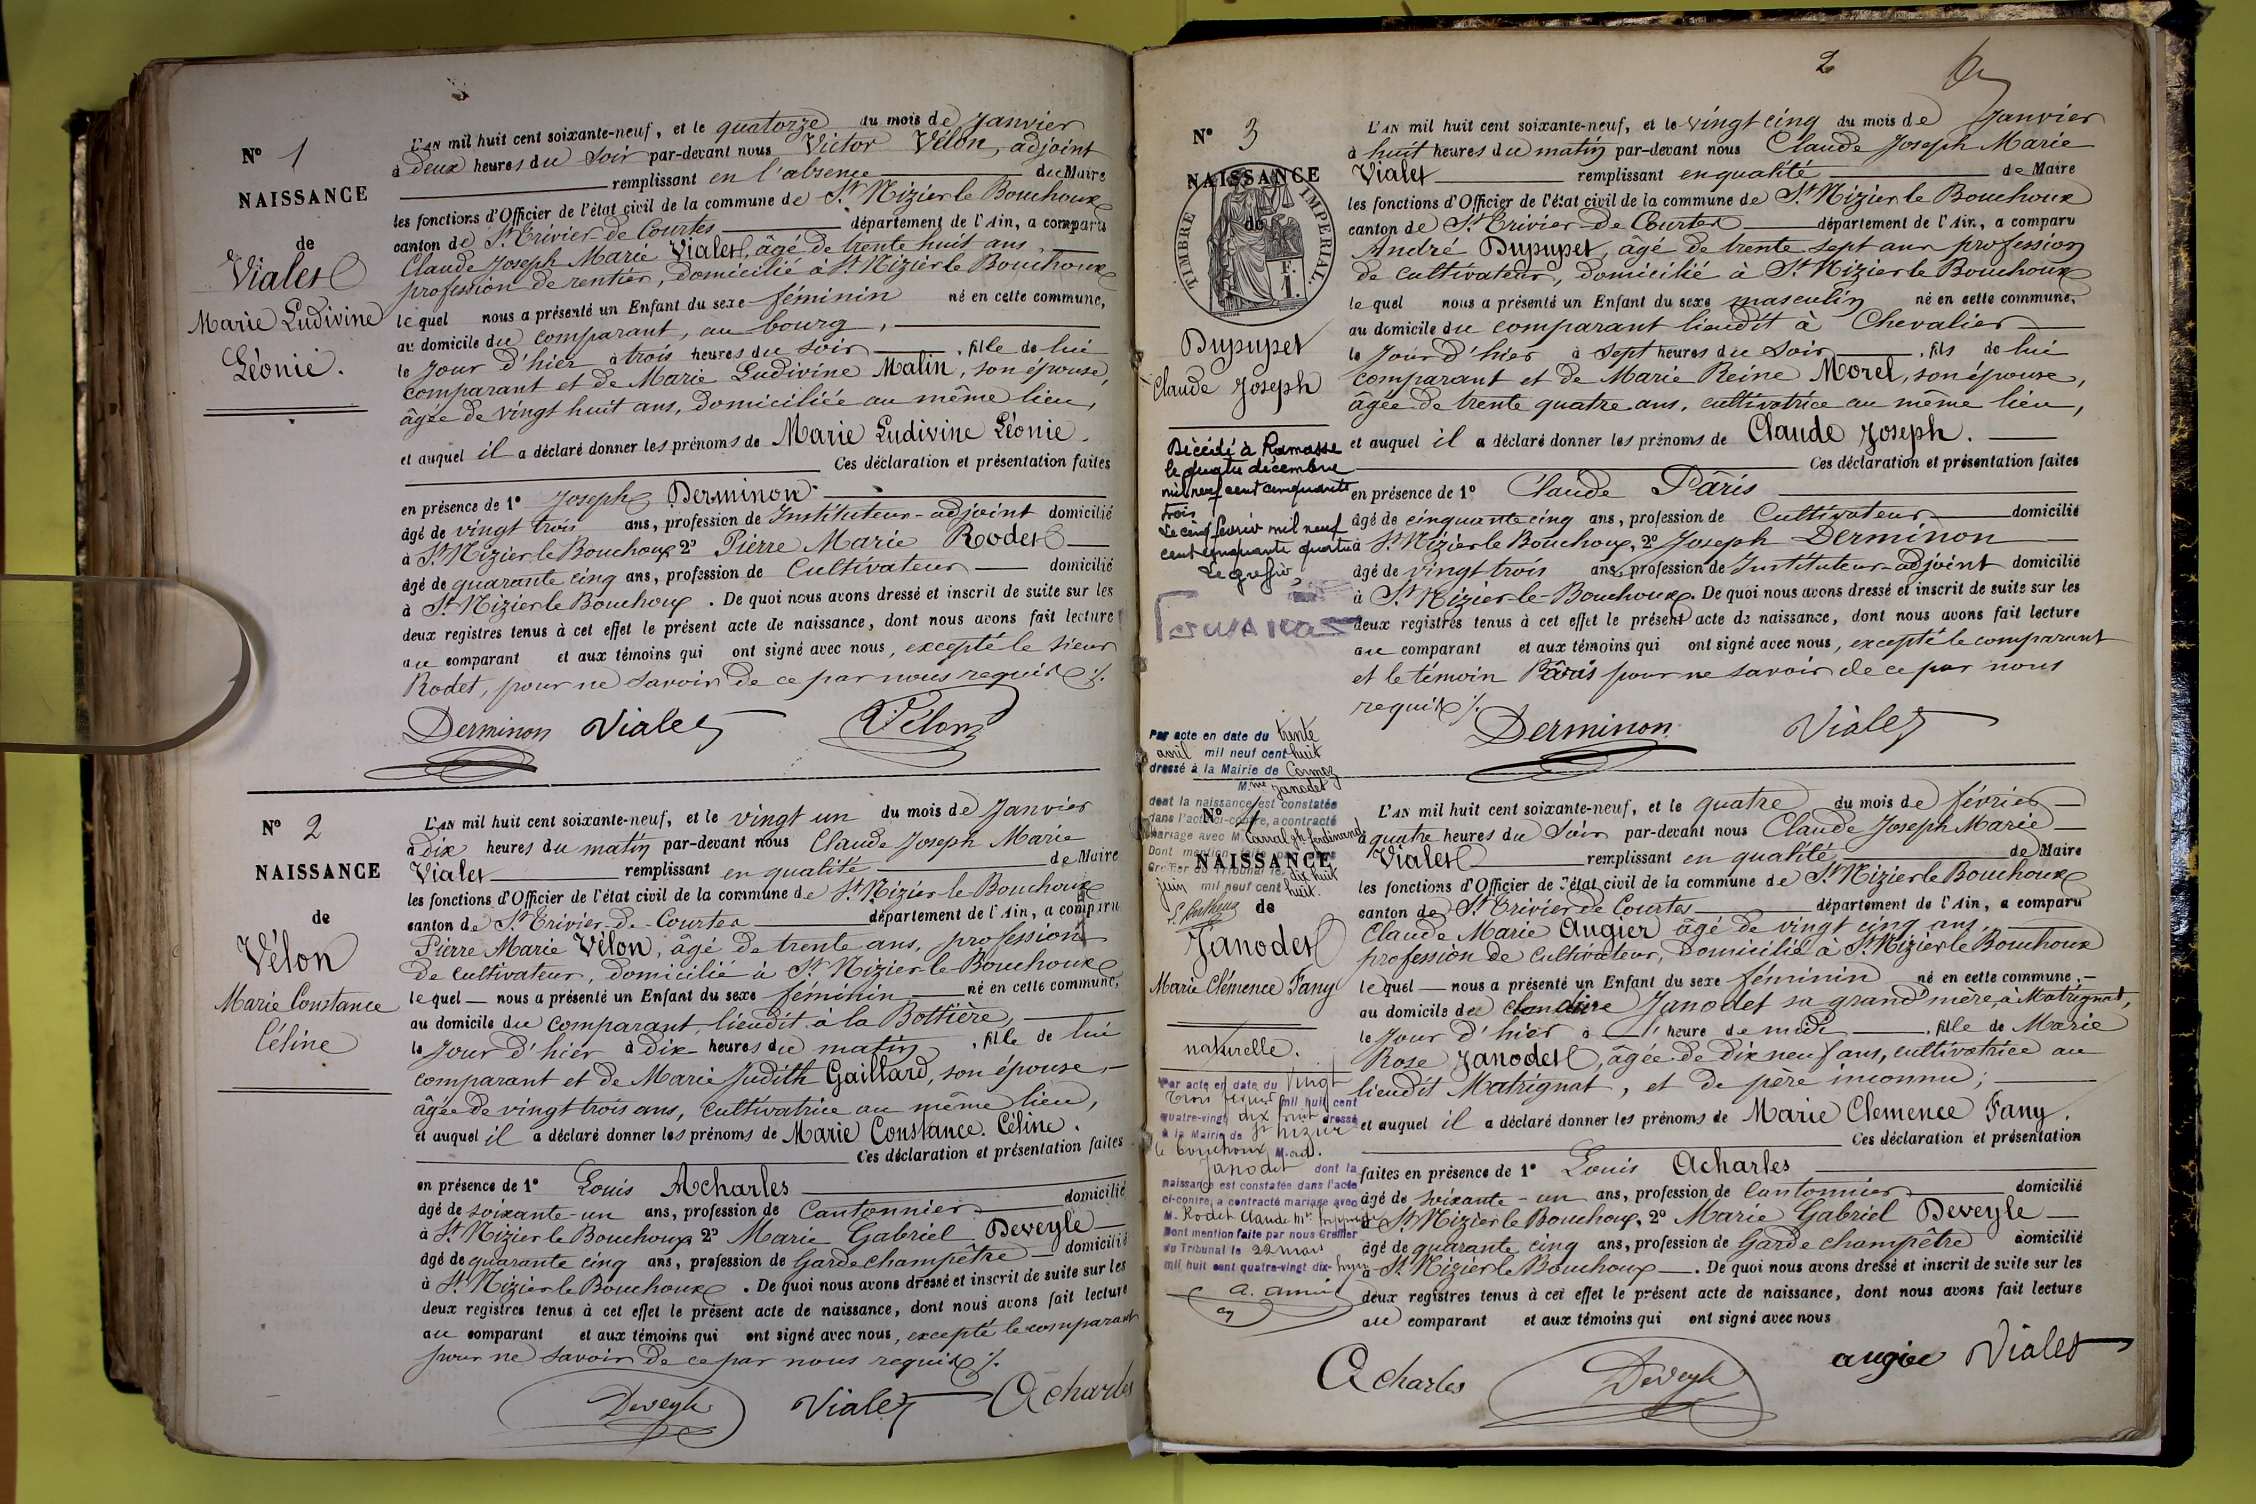 N° 1
NAISSANCE
de
Vialet
Marie Ludivine
Léonie.
L'AN mil huit cent soixante-neuf, et le quatorze du mois de Janvier
à deux heures du soir par-devant nous Victor Vélon, adjoint
remplissant en l'absence du Maire
les fonctions d'Officier de l'état civil de la commune de St Nizier le Bouchoux
canton de St Trivier de Courtes département de l'Ain, a comparu
Claude Joseph Marie Vialet, âgé de trente huit ans,
profession de rentier, domicilié à St Nizier le Bouchoux
le quel nous a présenté un Enfant du sexe féminin né en cette commune,
au domicile du comparant, au bourg,
le Jour d'hier à trois heures du soir, fille de lui
comparant et de Marie Ludivine Malin, son épouse,
âgée de vingt huit ans, domiciliée au même lieu,
et auquel il a déclaré donner les prénoms de Marie Ludivine Léonie.
Ces déclaration et présentation faites
en présence de 1° Joseph Derminon
âgé de vingt trois ans, profession de Instituteur-adjoint domicilié
à St Nizier le Bouchoux 2° Pierre Marie Rodet
âgé de quarante cinq ans, profession de Cultivateur domicilié
à St Nizier le Bouchoux. De quoi nous avons dressé et inscrit de suite sur les
deux registres tenus à cet effet le présent acte de naissance, dont nous avons fait lecture
au comparant et aux témoins qui ont signé avec nous, excepté le sieur
Rodet, pour ne savoir de ce par nous requis ./.
Derminon Vialet Vélon
N° 2
NAISSANCE
de
Vélon
Marie Constance
Céline
L'AN mil huit cent soixante-neuf, et le vingt un du mois de Janvier
à dix heures du matin par-devant nous Claude Joseph Marie
Vialet remplissant en qualité de Maire
les fonctions d'Officier de l'état civil de la commune de St Nizier le Bouchoux
canton de St Trivier de Courtes département de l'Ain, a comparu
Pierre Marie Vélon, âgé de trente ans, profession
de cultivateur, domicilié à St Nizier le Bouchoux
le quel nous a présenté un Enfant du sexe féminin né en cette commune,
au domicile du comparant, lieudit à la Bottière,
le Jour d'hier à dix heures du matin, fille de lui
comparant et de Marie Judith Gaillard, son épouse,
âgée de vingt trois ans, cultivatrice au même lieu,
et auquel il a déclaré donner les prénoms de Marie Constance Céline.
Ces déclaration et présentation faites
en présence de 1° Louis Acharles
âgé de soixante-un ans, profession de Cantonnier domicilié
à St Nizier le Bouchoux 2° Marie Gabriel Deveyle
âgé de quarante cinq ans, profession de Garde champêtre domicilié
à St Nizier le Bouchoux. De quoi nous avons dressé et inscrit de suite sur les
deux registres tenus à cet effet le présent acte de naissance, dont nous avons fait lecture
au comparant et aux témoins qui ont signé avec nous, excepté le comparant
pour ne savoir de ce par nous requis ./.
Deveyle Vialet Acharles
2
N° 3
NAISSANCE
de
TIMBRE IMPERIAL
1 F.
Dupupet
Claude Joseph
Décédé à Ramasse
le quatre décembre
mil neuf cent cinquante
trois
Le cinq février mil neuf
cent cinquante quatre
Le greffier
L'AN mil huit cent soixante-neuf, et le vingt cinq du mois de Janvier
à huit heures du matin par-devant nous Claude Joseph Marie
Vialet remplissant en qualité de Maire
les fonctions d'Officier de l'état civil de la commune de St Nizier le Bouchoux
canton de St Trivier de Courtes département de l'Ain, a comparu
André Dupupet, âgé de trente sept ans profession
de cultivateur, domicilié à St Nizier le Bouchoux
le quel nous a présenté un Enfant du sexe masculin né en cette commune,
au domicile du comparant lieudit à Chevalier
le Jour d'hier à sept heures du soir, fils de lui
comparant et de Marie Reine Morel, son épouse,
âgée de trente quatre ans, cultivatrice au même lieu,
et auquel il a déclaré donner les prénoms de Claude Joseph.
Ces déclaration et présentation faites
en présence de 1° Claude Pâris
âgé de cinquante cinq ans, profession de Cultivateur domicilié
à St Nizier le Bouchoux, 2° Joseph Derminon
âgé de vingt trois ans, profession de Instituteur-adjoint domicilié
à St Nizier-le-Bouchoux. De quoi nous avons dressé et inscrit de suite sur les
deux registres tenus à cet effet le présent acte de naissance, dont nous avons fait lecture
au comparant et aux témoins qui ont signé avec nous, excepté le comparant
et le témoin Pâris pour ne savoir de ce par nous
requis ./.
Derminon Vialet
Par acte en date du trente
avril mil neuf cent huit
dressé à la Mairie de Cormoz
M.me Janodet
dont la naissance est constatée
dans l'acte ci-contre, a contracté
mariage avec M. Carral Jh Ferdinand
Dont mention faite par nous
Greffier du Tribunal le dix huit
juin mil neuf cent huit.
N° 4
NAISSANCE
de
Janodet
Marie Clémence Fany
naturelle.
Par acte en date du vingt
trois février mil huit cent
quatre-vingt dix huit dressé
à la Mairie de St Nizier
le bouchoux M.
Janodet dont la
naissance est constatée dans l'acte
ci-contre, a contracté mariage avec
M. Rodet Claude Mie
Dont mention faite par nous Greffier
du Tribunal le 22 mars
mil huit cent quatre-vingt dix-huit
L'AN mil huit cent soixante-neuf, et le quatre du mois de février
à quatre heures du soir par-devant nous Claude Joseph Marie
Vialet remplissant en qualité de Maire
les fonctions d'Officier de l'état civil de la commune de St Nizier le Bouchoux
canton de St Trivier de Courtes département de l'Ain, a comparu
Claude Marie Augier âgé de vingt cinq ans,
profession de Cultivateur, domicilié à St Nizier le Bouchoux
le quel nous a présenté un Enfant du sexe féminin né en cette commune,
au domicile de Claudine Janodet sa grand'mère, à Matrignat,
le Jour d'hier à l'heure de midi, fille de Marie
Rose Janodet, âgée de dix neuf ans, cultivatrice au
lieudit Matrignat, et de père inconnu;
et auquel il a déclaré donner les prénoms de Marie Clemence Fany.
Ces déclaration et présentation
faites en présence de 1° Louis Acharles
âgé de soixante-un ans, profession de Cantonnier domicilié
à St Nizier le Bouchoux, 2° Marie Gabriel Deveyle
âgé de quarante cinq ans, profession de Garde champêtre domicilié
à St Nizier le Bouchoux. De quoi nous avons dressé et inscrit de suite sur les
deux registres tenus à cet effet le présent acte de naissance, dont nous avons fait lecture
au comparant et aux témoins qui ont signé avec nous
Acharles Deveyle augier Vialet